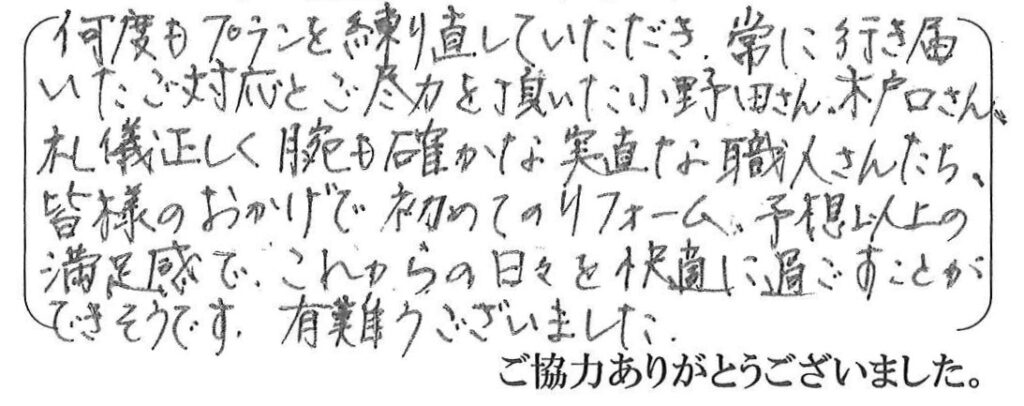 何度もプランを練り直していただき、常に行き届
いたご対応とご尽力を頂いた小野田さん、木戸口さん、
礼儀正しく腕も確かな実直な職人さんたち、
皆様のおかげで初めてのリフォーム、予想以上の
満足感で、これからの日々を快適に過ごすことが
できそうです。有難うございました。
ご協力ありがとうございました。